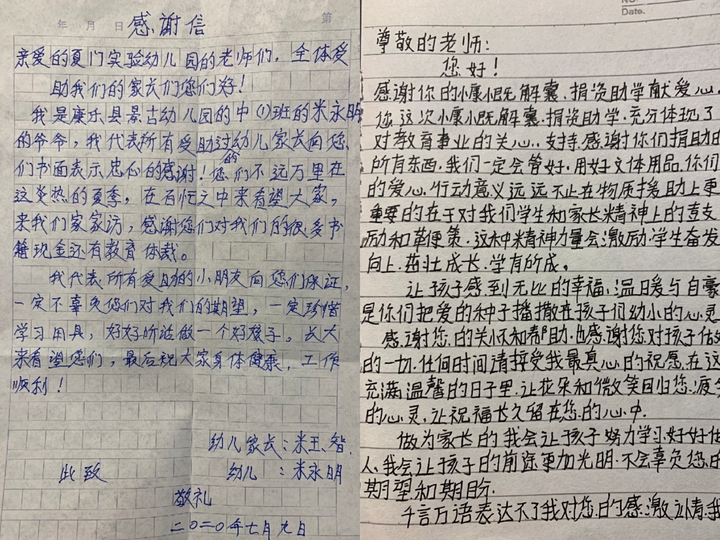 年 月 日
第
感谢信
亲爱的夏门实验幼儿园的老师们，全体受
助我们的家长们您们好！
我是康乐县景古幼儿园的中(1)班的米永明
的爷爷，我代表所有受助过幼儿家长向您
们书面表示忠心的感谢！您们不远万里在
的
这炎热的夏季，在百忙之中来看望大家，
来我们家家访，感谢您们对我们的很多书
籍现金还有教育体裁。
我代表所有受助的小朋友向您们保证，
一定不辜负您们对我们的期望，一定珍惜
学习用具，好好听话做一个好孩子，长大
来看望您们，最后祝大家身体健康，工作
顺利！
幼儿家长：米玉智
此致 幼儿：米永明
敬礼
二〇二〇年七月九日
No
Date.
尊敬的老师：
您好！
感谢你的小慷小既解囊．捐资助学献爱心．
您这次小慷小既解囊．捐资助学．充分体现了
对教育事业的关心．支持．感谢你们捐助的
所有东西．我们一定会管好．用好文体用品．你们
的爱心．行动意义远远不止在物质援助上更
重要的在于对我们学生和家长精神上的支
励和鞭策．这种精神力量会激励学生奋发
向上．茁壮成长．学有所成。
让孩子感到无比的幸福、温暖与自豪
是你们把爱的种子播撒在孩子们幼小的心灵
感谢您．的关怀和帮助．也感谢您对孩子做
的一切．任何时间请接受我最真心的祝愿．在这
充满温馨的日子里．让花朵和微笑回归您．疲
的心灵．让祝福长久留在您的心中．
做为家长的我会让孩子努力学习．好好做
人．我会让孩子的前途更加光明．不会辜负您的
期望和期盼．
千言万语表达不了我对您的感激．请我